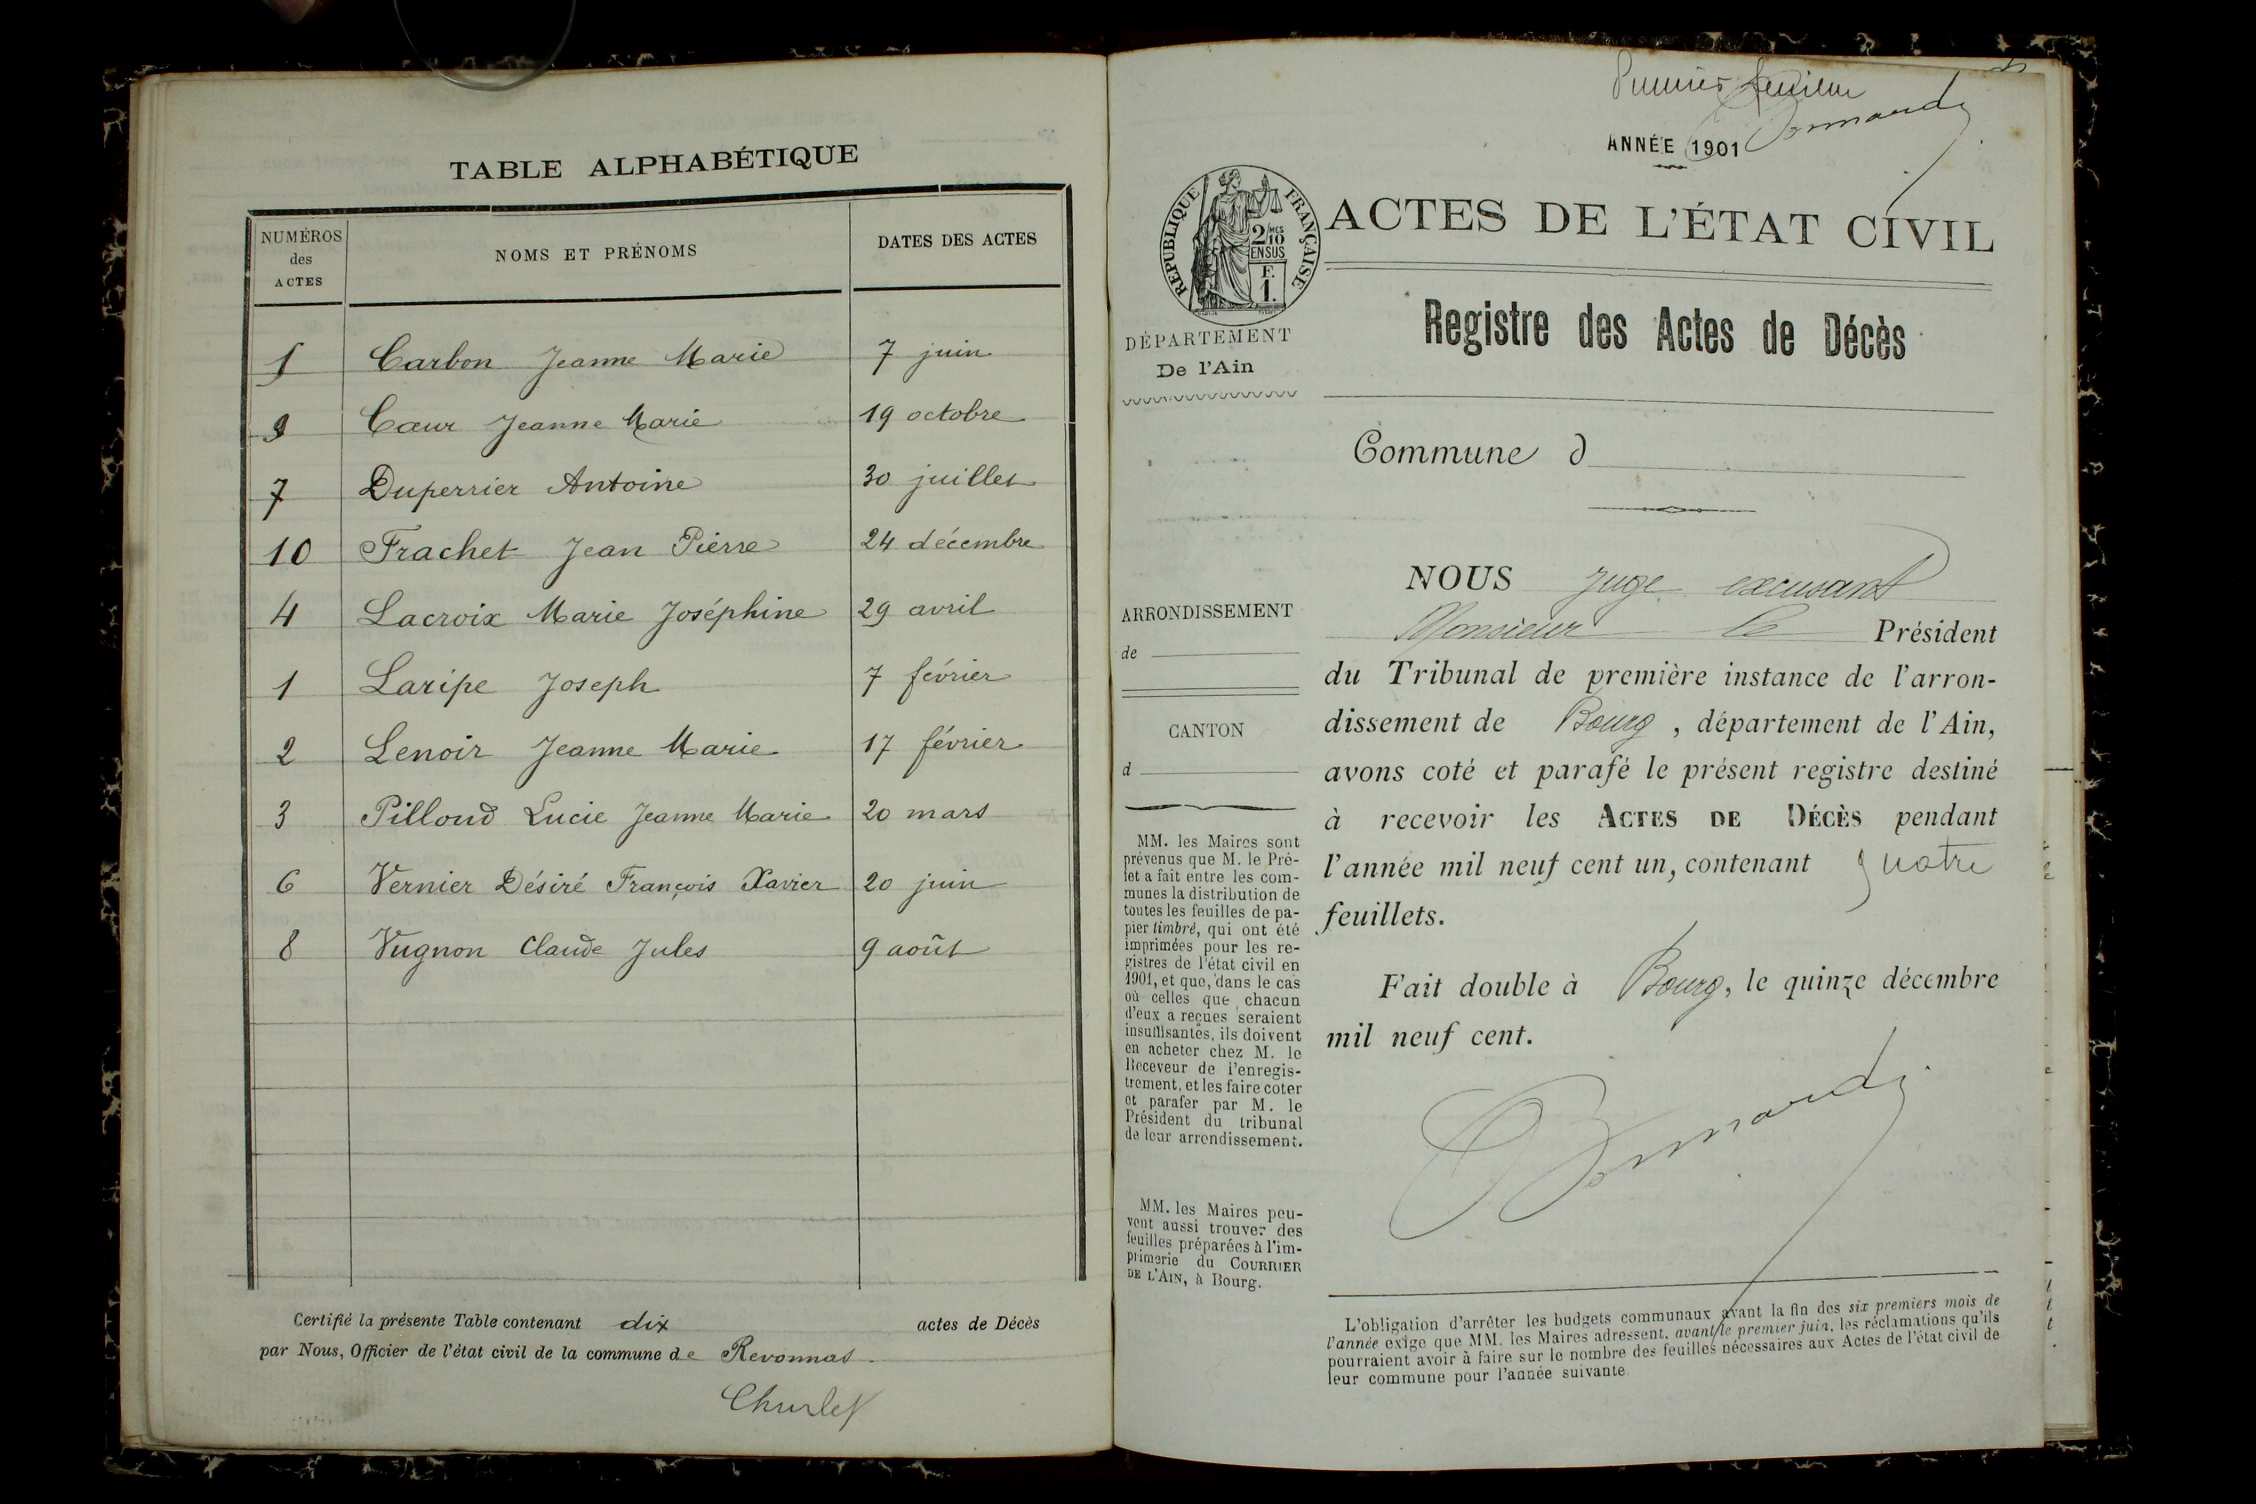 TABLE ALPHABÉTIQUE
NUMÉROS des ACTES NOMS ET PRÉNOMS DATES DES ACTES
5 Carbon Jeanne Marie 7 juin
9 Cœur Jeanne Marie 19 octobre
7 Duperrier Antoine 30 juillet
10 Frachet Jean Pierre 24 décembre
4 Lacroix Marie Joséphine 29 avril
1 Laripe Joseph 7 février
2 Lenoir Jeanne Marie 17 février
3 Pilloud Lucie Jeanne Marie 20 mars
6 Vernier Désiré François Xavier 20 juin
8 Vugnon Claude Jules 9 août
Certifié la présente Table contenant dix actes de Décès
par Nous, Officier de l'état civil de la commune de Revonnas
Premier feuillet
ANNÉE 1901
RÉPUBLIQUE FRANÇAISE
2/10MES
EN SUS
F.
1.
ACTES DE L'ÉTAT CIVIL
Registre des Actes de Décès
DÉPARTEMENT
De l'Ain
Commune d
ARRONDISSEMENT
de
CANTON
d
MM. les Maires sont
prévenus que M. le Pré-
fet a fait entre les com-
munes la distribution de
toutes les feuilles de pa-
pier timbré, qui ont été
imprimées pour les re-
gistres de l'état civil en
1901, et que, dans le cas
où celles que chacun
d'eux a reçues seraient
insuffisantes, ils doivent
en acheter chez M. le
Receveur de l'enregis-
trement, et les faire coter
et parafer par M. le
Président du tribunal
de leur arrondissement.
MM. les Maires peu-
vent aussi trouver des
feuilles préparées à l'im-
primerie du COURRIER
DE L'AIN, à Bourg.
NOUS Juge excusant
Monsieur le Président
du Tribunal de première instance de l'arron-
dissement de Bourg, département de l'Ain,
avons coté et parafé le présent registre destiné
à recevoir les ACTES DE DÉCÈS pendant
l'année mil neuf cent un, contenant quatre
feuillets.
Fait double à Bourg, le quinze décembre
mil neuf cent.
L'obligation d'arrêter les budgets communaux avant la fin des six premiers mois de
l'année exige que MM. les Maires adressent, avant le premier juin, les réclamations qu'ils
pourraient avoir à faire sur le nombre des feuilles nécessaires aux Actes de l'état civil de
leur commune pour l'année suivante